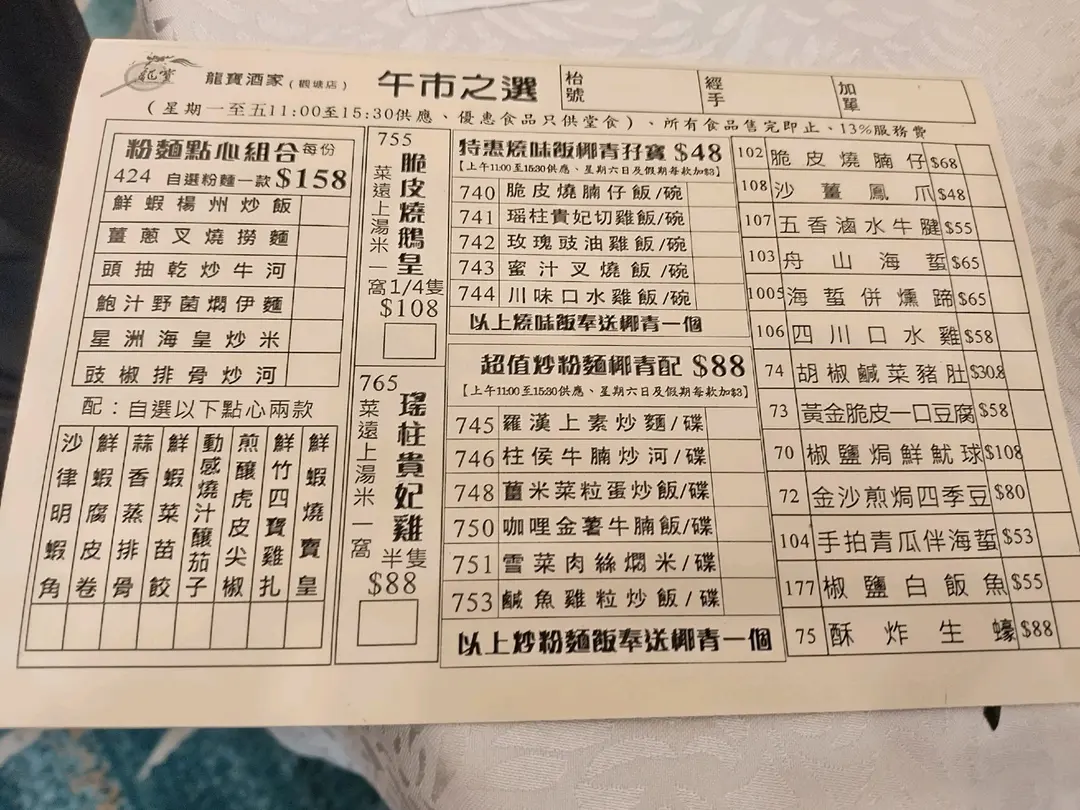 龍堂 龍寶酒家(觀塘店) 午市之選 枱號 經手 加單
(星期一至五11:00至15:30供應、優惠食品只供堂食)、所有食品售完即止、13%服務費
粉麵點心組合每份
424 自選粉麵一款 $158
鮮蝦楊州炒飯
薑蔥叉燒撈麵
頭抽乾炒牛河
鮑汁野菌燜伊麵
星洲海皇炒米
豉椒排骨炒河
配：自選以下點心兩款
沙律明蝦角
鮮蝦腐皮卷
蒜香蒸排骨
鮮蝦菜苗餃
動感燒汁釀茄子
煎釀虎皮尖椒
鮮竹四寶雞扎
鮮蝦燒賣皇
755
脆皮燒鵝皇
菜遠上湯米一窩
1/4隻
$108
765
瑤柱貴妃雞
菜遠上湯米一窩
半隻
$88
特惠燒味飯椰青孖寶 $48
【上午11:00至15:30供應、星期六日及假期每款加$3】
740 脆皮燒腩仔飯/碗
741 瑶柱貴妃切雞飯/碗
742 玫瑰豉油雞飯/碗
743 蜜汁叉燒飯/碗
744 川味口水雞飯/碗
以上燒味飯奉送椰青一個
超值炒粉麵椰青配 $88
【上午11:00至15:30供應、星期六日及假期每款加$3】
745 羅漢上素炒麵/碟
746 柱侯牛腩炒河/碟
748 薑米菜粒蛋炒飯/碟
750 咖哩金薯牛腩飯/碟
751 雪菜肉絲燜米/碟
753 鹹魚雞粒炒飯/碟
以上炒粉麵飯奉送椰青一個
102 脆皮燒腩仔 $68
108 沙薑鳳爪 $48
107 五香滷水牛腱 $55
103 舟山海蜇 $65
1005 海蜇併燻蹄 $65
106 四川口水雞 $58
74 胡椒鹹菜豬肚 $30.8
73 黃金脆皮一口豆腐 $58
70 椒鹽焗鮮魷球 $108
72 金沙煎焗四季豆 $80
104 手拍青瓜伴海蜇 $53
177 椒鹽白飯魚 $55
75 酥炸生蠔 $88